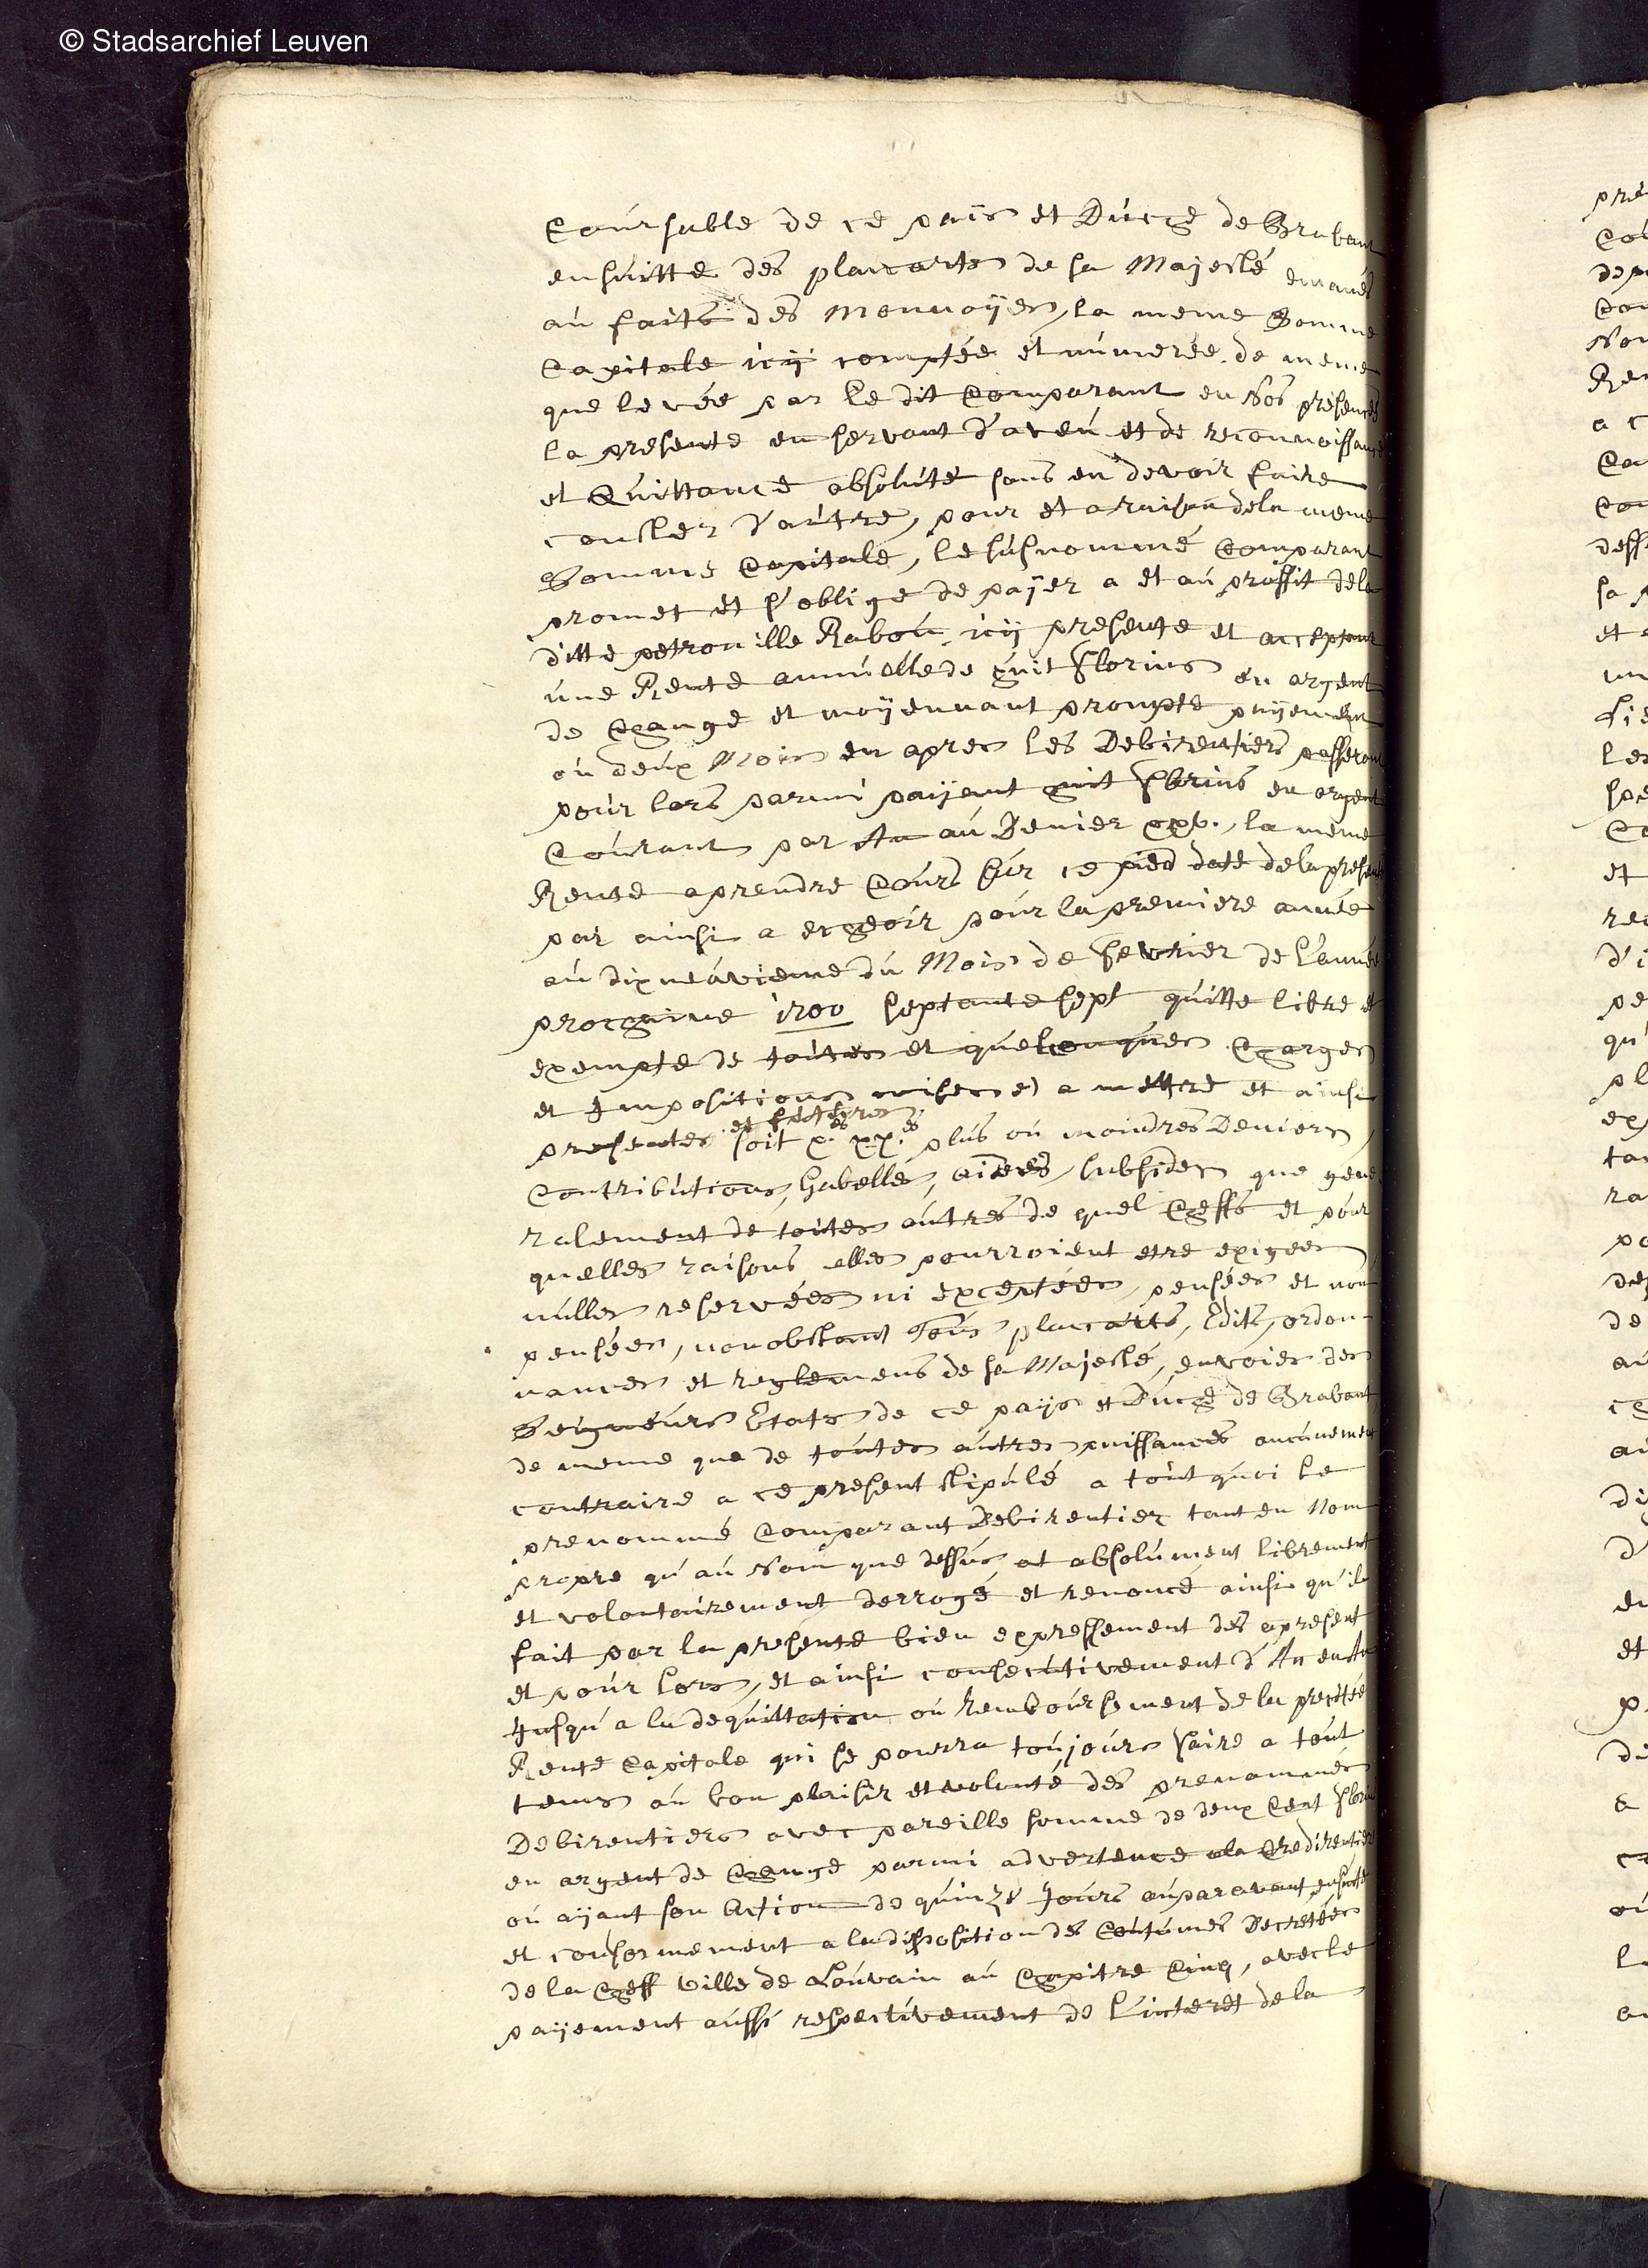 © Stadsarchief Leuven
Coursable de ce païs et Duché de Brabant
ensuitte des placcarts de sa Majesté emanés
au faits des Monnoÿes, la meme Somme
Capitale icÿ comptée et numerée de meme
que levée par le dit Comparant en Nos presences
la presente en servant d'aveu et de reconnoissance
et Quittance absolute sans en devoir faire
conster d'autre, pour et a raison dela meme
Somme Capitale, le susnommé Comparant
promet et s'oblige de païer a et au proffit dela
ditte petronille Rabou icÿ presente et acceptant
une Rente annuelle de huit Florins en argent
de Change et moÿennant prompte païement
ou deux Mois en apres les Debirentiers passeront
pour lors parmi païant huit florins en argent
Courant par An au Denier xxv., la meme
Rente a prendre Cours Sur ce pied date dela presente
par ainsi a echeoir pour la premiere année
au dix neuvieme du Mois de Fevrier de l'année
prochaine 1700 septante sept quitte libre et
exempte de toutes et quelconques Charges
et Impositions mises et a mettre et ainsi
et futures
presentes soit x.es xx.es plus ou moindres Deniers,
Contributions, Gabelles, aides, subsides que gene
ralement de toutes autres de quel Cheffs et pour
quelles raisons elles pourroient etre exigées
nulles reservées ni exceptées, pensées et non
pensées, nonobstant Tous placcarts, Edits, ordon-
nances et reglemens de sa Majesté, envoies des
Seigneurs Etats de ce païs et Duché de Brabant
de meme que de toutes autres puissances aucunement
contraire a ce present stipulé a tout quoi le
prenommé Comparant Debirentier tant en Nom
propre qu'au Nom que dessus at absolument librement
et volontairement derrogé et renoncé ainsi qu'il
fait par la presente bien expressement des apresent
et pour lors, et ainsi consecutivement d'An en An
Jusqu'a la dequittation ou Remboursement de la precitée
Rente Capitale qui se pourra toujours faire a tout
tems au bon plaisir et volonté des prenommés
Debirentiers avec pareille somme de deux Cent florins
en argent de Change parmi advertence ala Credirentiere
ou aÿant son Action de quinze Jours auparavant ensuitte
et conformement a la disposition des Coutumes Decretées
de la Cheff Ville de Louvain au Chapitre Cinq, avec le
païement aussi respectivement de l'interet de la